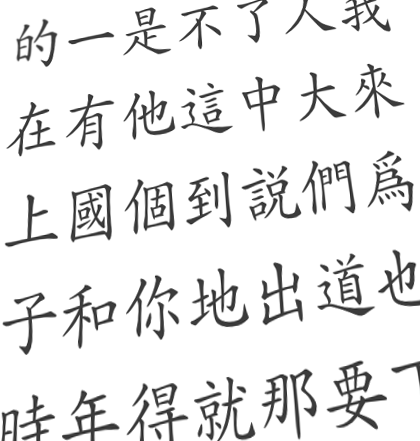 的一是不了人我
在有他這中大來
上國個到説們爲
子和你地出道也
時年得就那要下